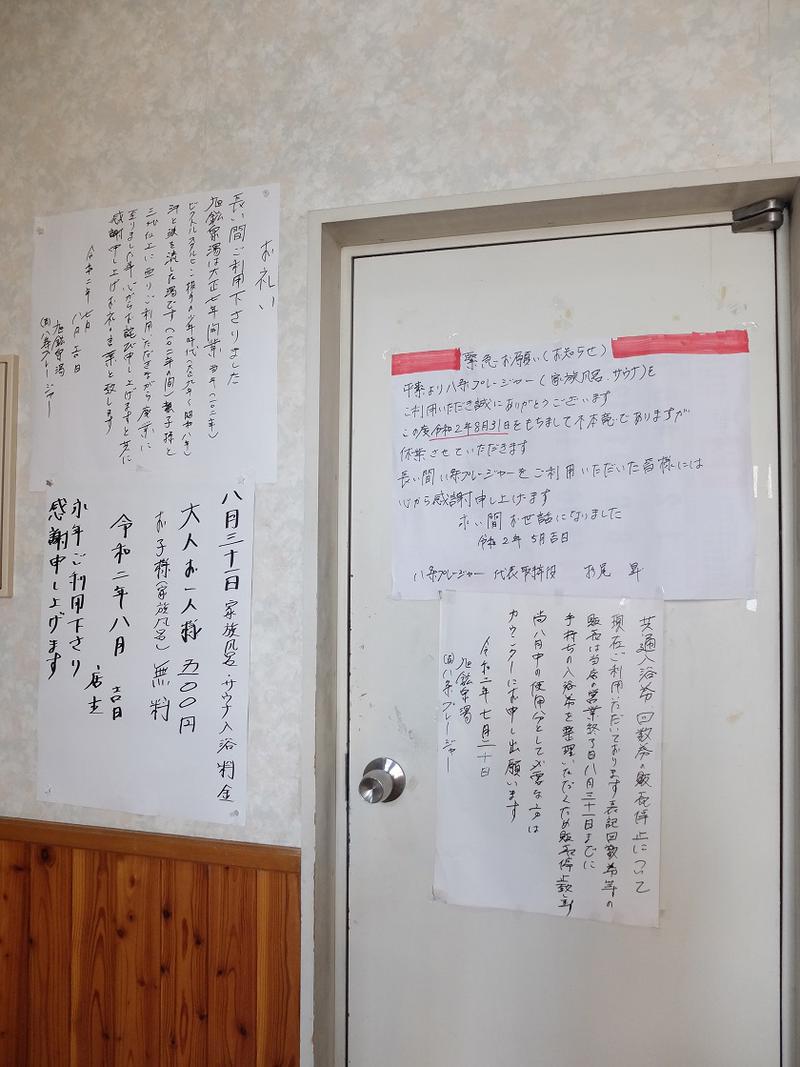 お礼
長い間ご利用下さりました
旭鉱泉湯は大正七年開業
三代
ご利用いただきながら
感謝申し上げお礼の言葉と致します
令和二年 八月吉日
旭鉱泉湯
㈲八条プレージャー
八月三十一日家族風呂・サウナ入浴料金
大人お一人様 五〇〇円
お子様(家族風呂)無料
令和二年八月 吉日
店主
永年ご利用下さり
感謝申し上げます
緊急お願い(お知らせ)
平素より八条プレージャー(家族風呂.サウナ)を
ご利用いただき誠にありがとうございます
この度令和2年8月31日をもちまして不本意でありますが
休業させていただきます
長い間八条プレージャーをご利用いただいた皆様には
心から感謝申し上げます
永い間お世話になりました
令和2年5月吉日
八条プレージャー 代表取締役 昇
共通入浴券回数券の販売停止について
現在ご利用いただいております表記回数券等の
販売は当店の営業終了日八月三十一日までに
手持ちの入浴券を整理いただくため販売停止致します
尚八月中の使用分として必要な方は
カウンターにお申し出願います
令和二年七月二十日
旭鉱泉湯
㈲八条プレージャー